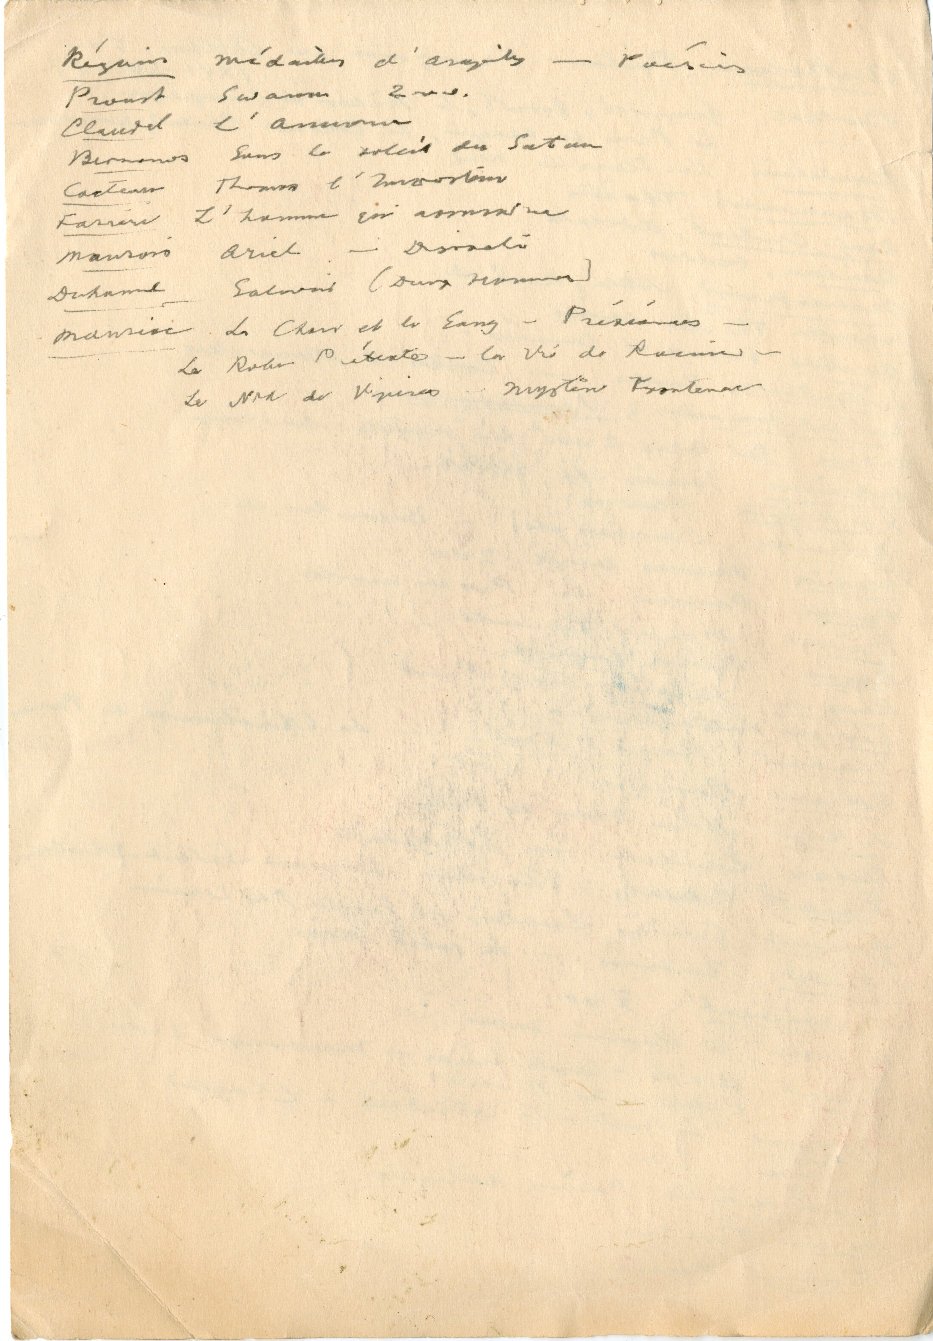 Régnier Médailles d'Argile — Poésies
Proust Swann 2 vol.
Claudel L'Annonce
Bernanos Sous le soleil de Satan
Cocteau Thomas l'Imposteur
Farrère L'homme qui assassina
Maurois Ariel — Disraeli
Duhamel Salavin (Deux Hommes)
Mauriac La Chair et le Sang — Préséances —
La Robe Prétexte — La Vie de Racine —
Le Nœud de Vipères — Mystère Frontenac